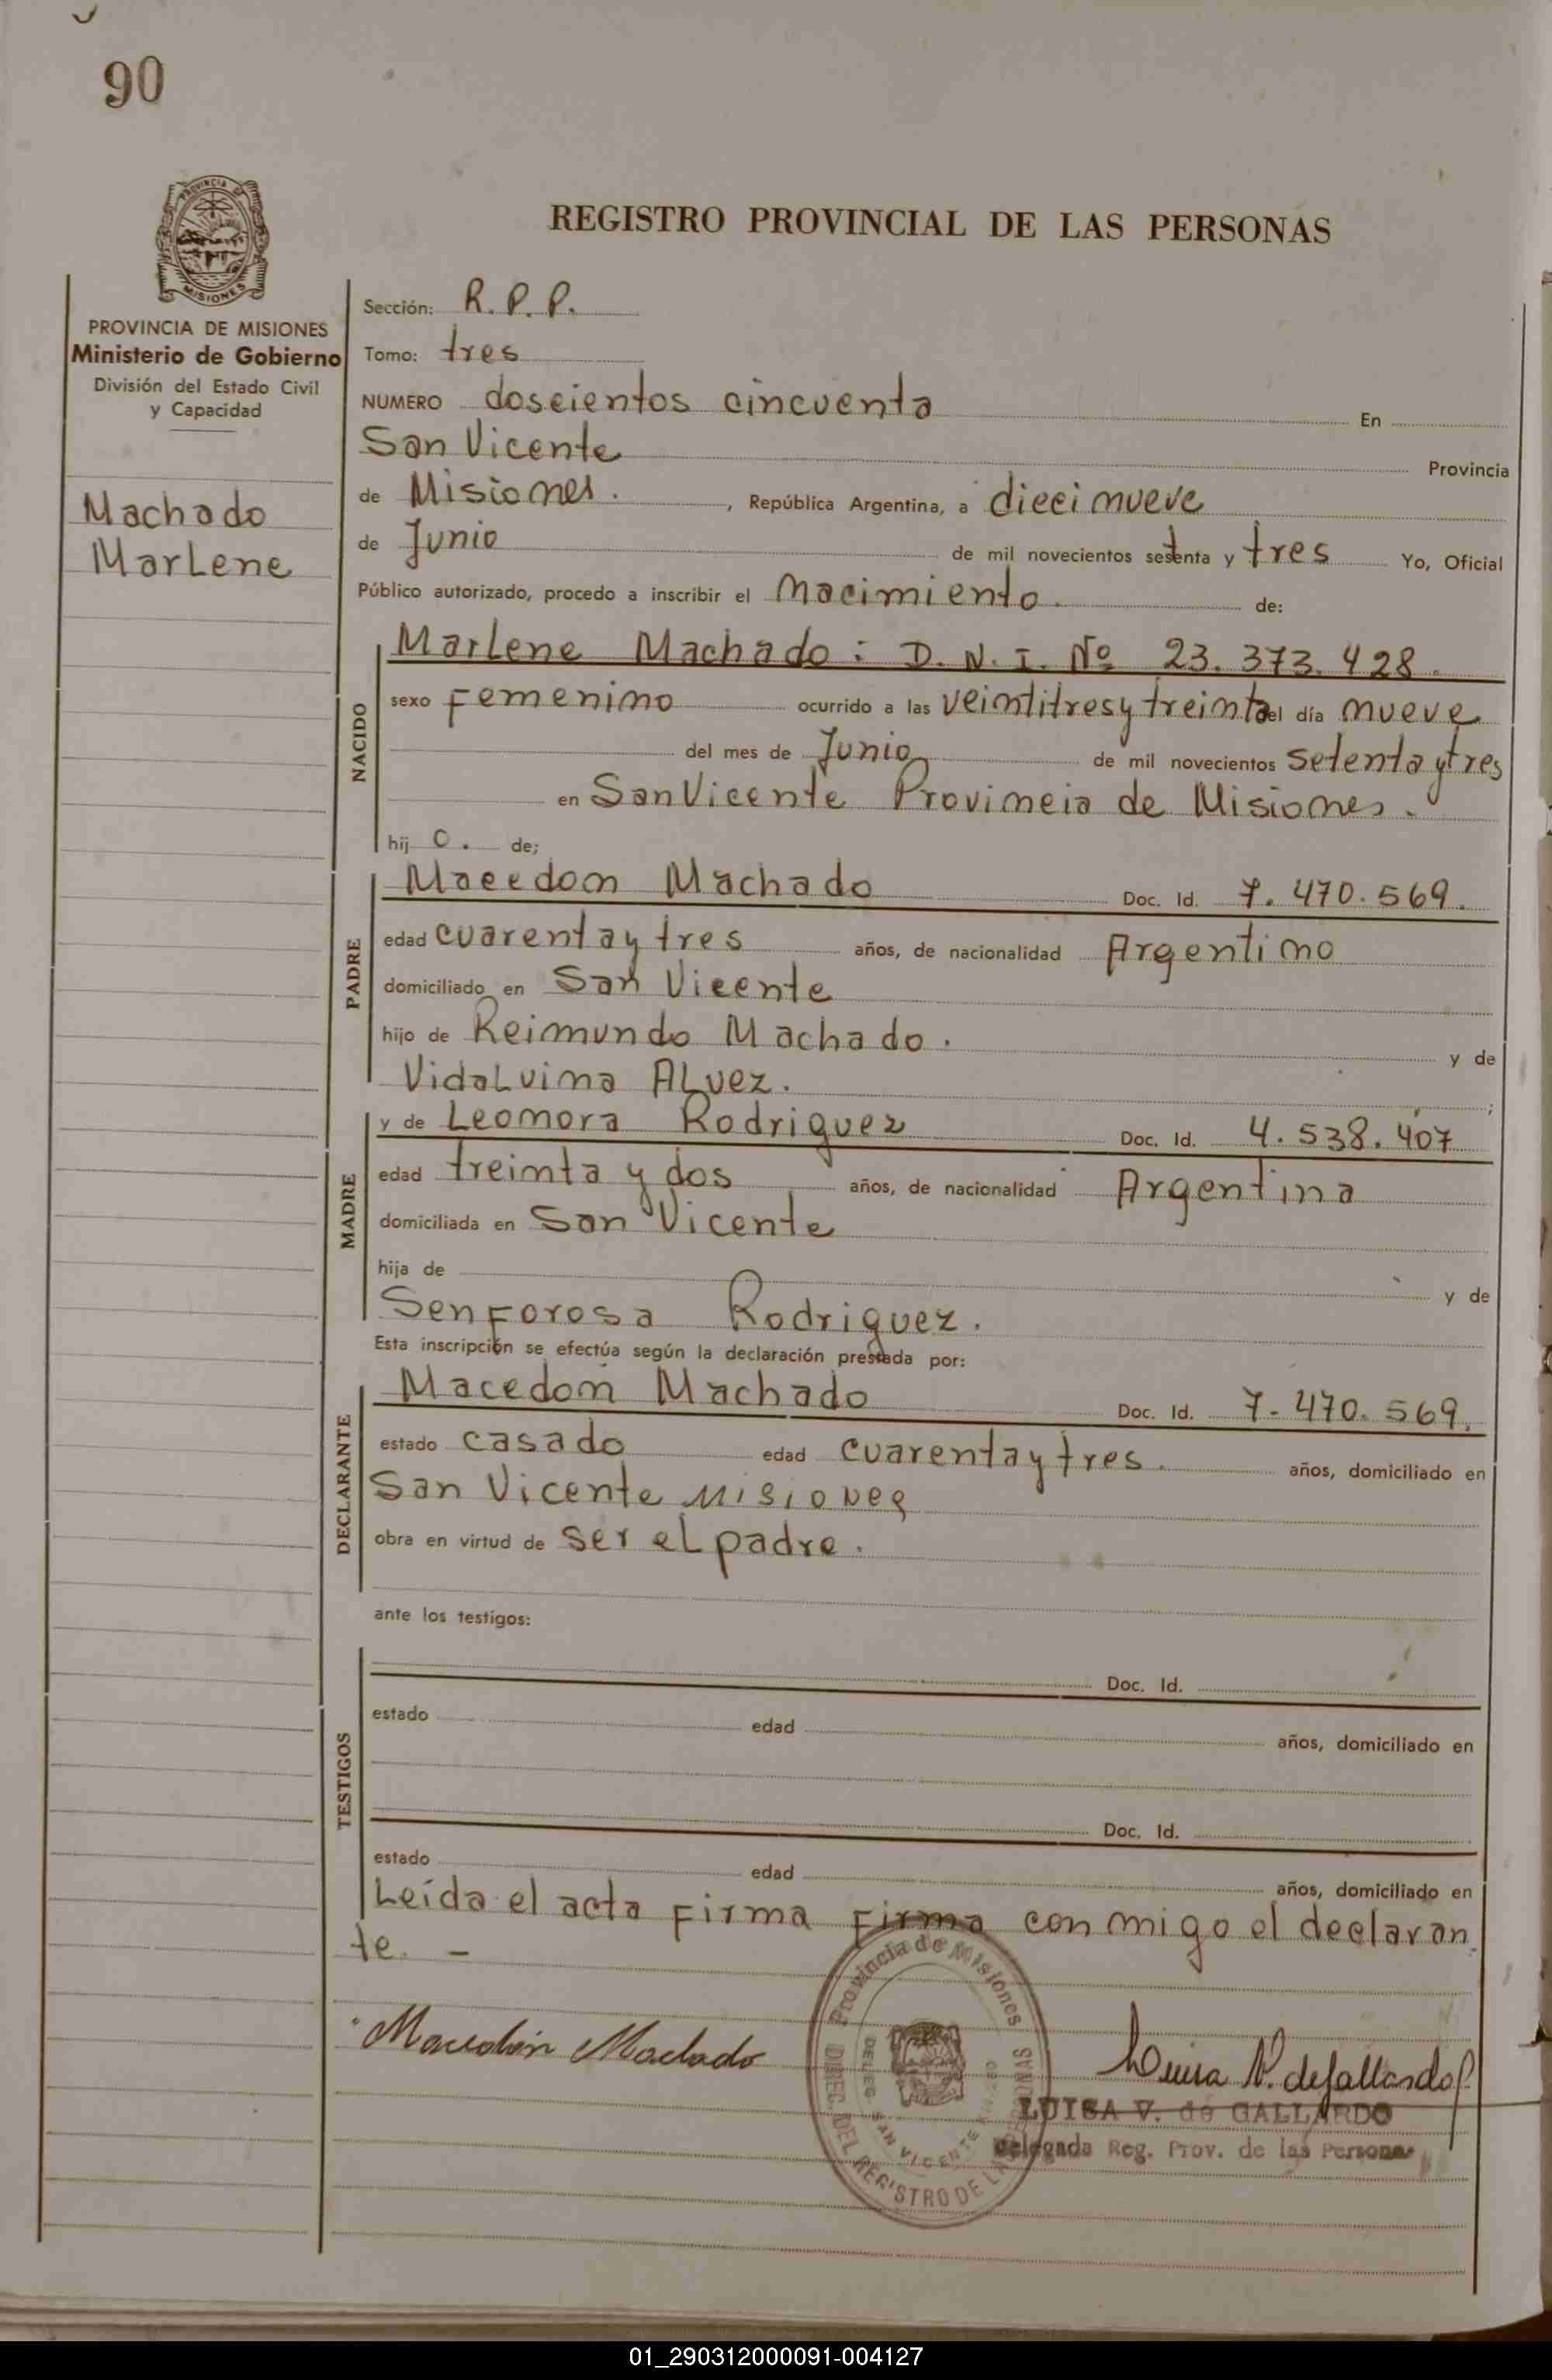 90
PROVINCIA DE
MISIONES
REGISTRO PROVINCIAL DE LAS PERSONAS
PROVINCIA DE MISIONES
Ministerio de Gobierno
División del Estado Civil
y Capacidad
Machado
Marlene
Sección: R. P. P.
Tomo: tres
NUMERO doscientos cincuenta En
San Vicente Provincia
de Misiones. , República Argentina, a diecinueve
de Junio de mil novecientos setenta y tres Yo, Oficial
Público autorizado, procedo a inscribir el nacimiento. de:
NACIDO
Marlene Machado : D. N. I. Nº 23. 373. 428.
sexo Femenino ocurrido a las veintitres y treinta del día nueve
del mes de Junio de mil novecientos setenta y tres
en San Vicente Provincia de Misiones.
hij o. de;
PADRE
Macedon Machado Doc. Id. 7. 470. 569.
edad cuarenta y tres años, de nacionalidad Argentino
domiciliado en San Vicente
hijo de Reimundo Machado. y de
Vidalvina Alvez. ;
MADRE
y de Leonora Rodriguez Doc. Id. 4. 538. 407
edad treinta y dos años, de nacionalidad Argentina
domiciliada en San Vicente
hija de y de
Senforosa Rodriguez.
Esta inscripción se efectúa según la declaración prestada por:
DECLARANTE
Macedon Machado Doc. Id. 7. 470. 569.
estado casado edad cuarenta y tres. años, domiciliado en
San Vicente Misiones
obra en virtud de ser el padre.
ante los testigos:
TESTIGOS
Doc. Id.
estado edad años, domiciliado en
Doc. Id.
estado edad años, domiciliado en
Leída el acta firma firma con migo el declaran
te. -
Macedon Machado
Provincia de Misiones
DIREC. DEL REGISTRO DE LAS PERSONAS
DELEG. SAN VICENTE
Luisa V. de Gallardo
LUISA V. de GALLARDO
Delegada Reg. Prov. de las Personas
01_290312000091-004127